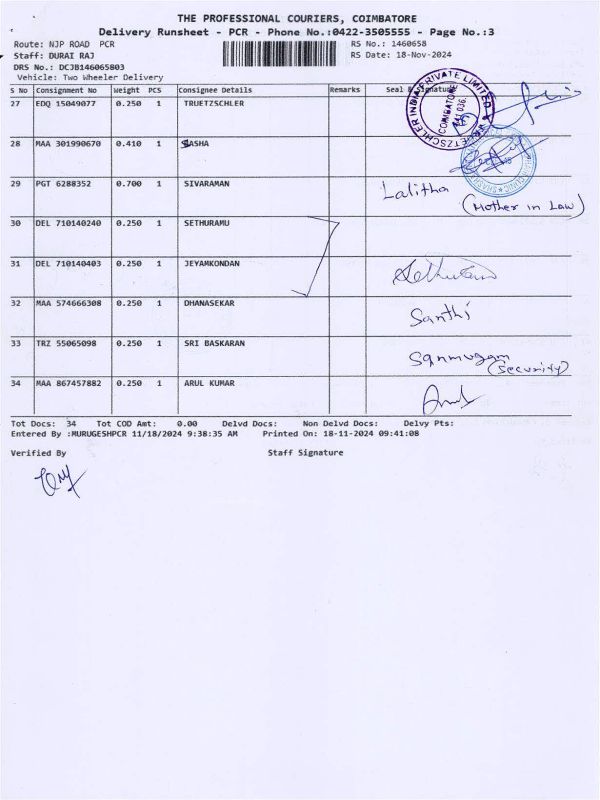 THE PROFESSIONAL COURIERS, COIMBATORE
Delivery Runsheet - PCR - Phone No.:0422-3505555 - Page No.:3
Route: NJP ROAD PCR RS No.: 1460658
Staff: DURAI RAJ RS Date: 18-Nov-2024
DRS No.: DCJB146065803
Vehicle: Two Wheeler Delivery
S No Consignment No Weight PCS Consignee Details Remarks Seal & Signature
27 EDQ 15049077 0.250 1 TRUETZSCHLER
TRUETZSCHLER INDIA PRIVATE LIMITED
COIMBATORE
641 036.
28 MAA 301990670 0.410 1 SASHA
29 PGT 6288352 0.700 1 SIVARAMAN Lalitha
(Mother in Law)
30 DEL 710140240 0.250 1 SETHURAMU
31 DEL 710140403 0.250 1 JEYAMKONDAN
32 MAA 574666308 0.250 1 DHANASEKAR Santhi
33 TRZ 55065098 0.250 1 SRI BASKARAN Sanmugam
(Security)
34 MAA 867457882 0.250 1 ARUL KUMAR
Tot Docs: 34 Tot COD Amt: 0.00 Delvd Docs: Non Delvd Docs: Delvy Pts:
Entered By :MURUGESHPCR 11/18/2024 9:38:35 AM Printed On: 18-11-2024 09:41:08
Verified By Staff Signature